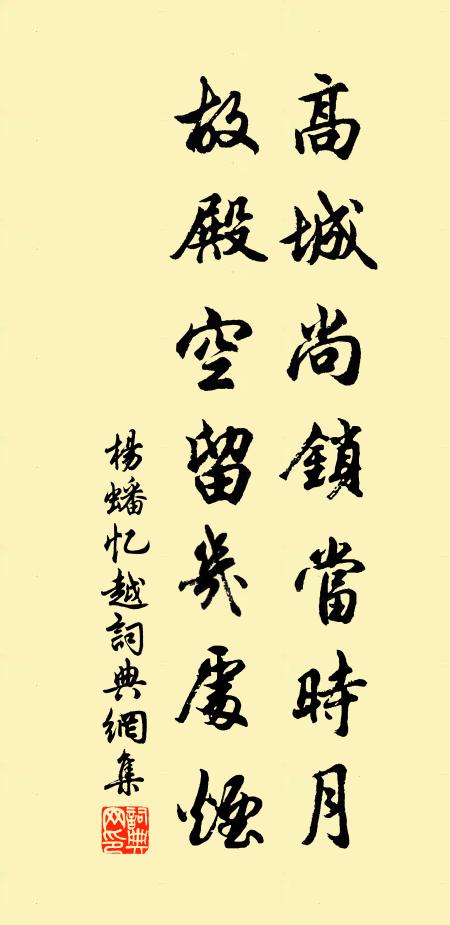 高城尚鎖當時月
故殿空留幾處煙
楊蟠忆越詞典網集
詞典网印